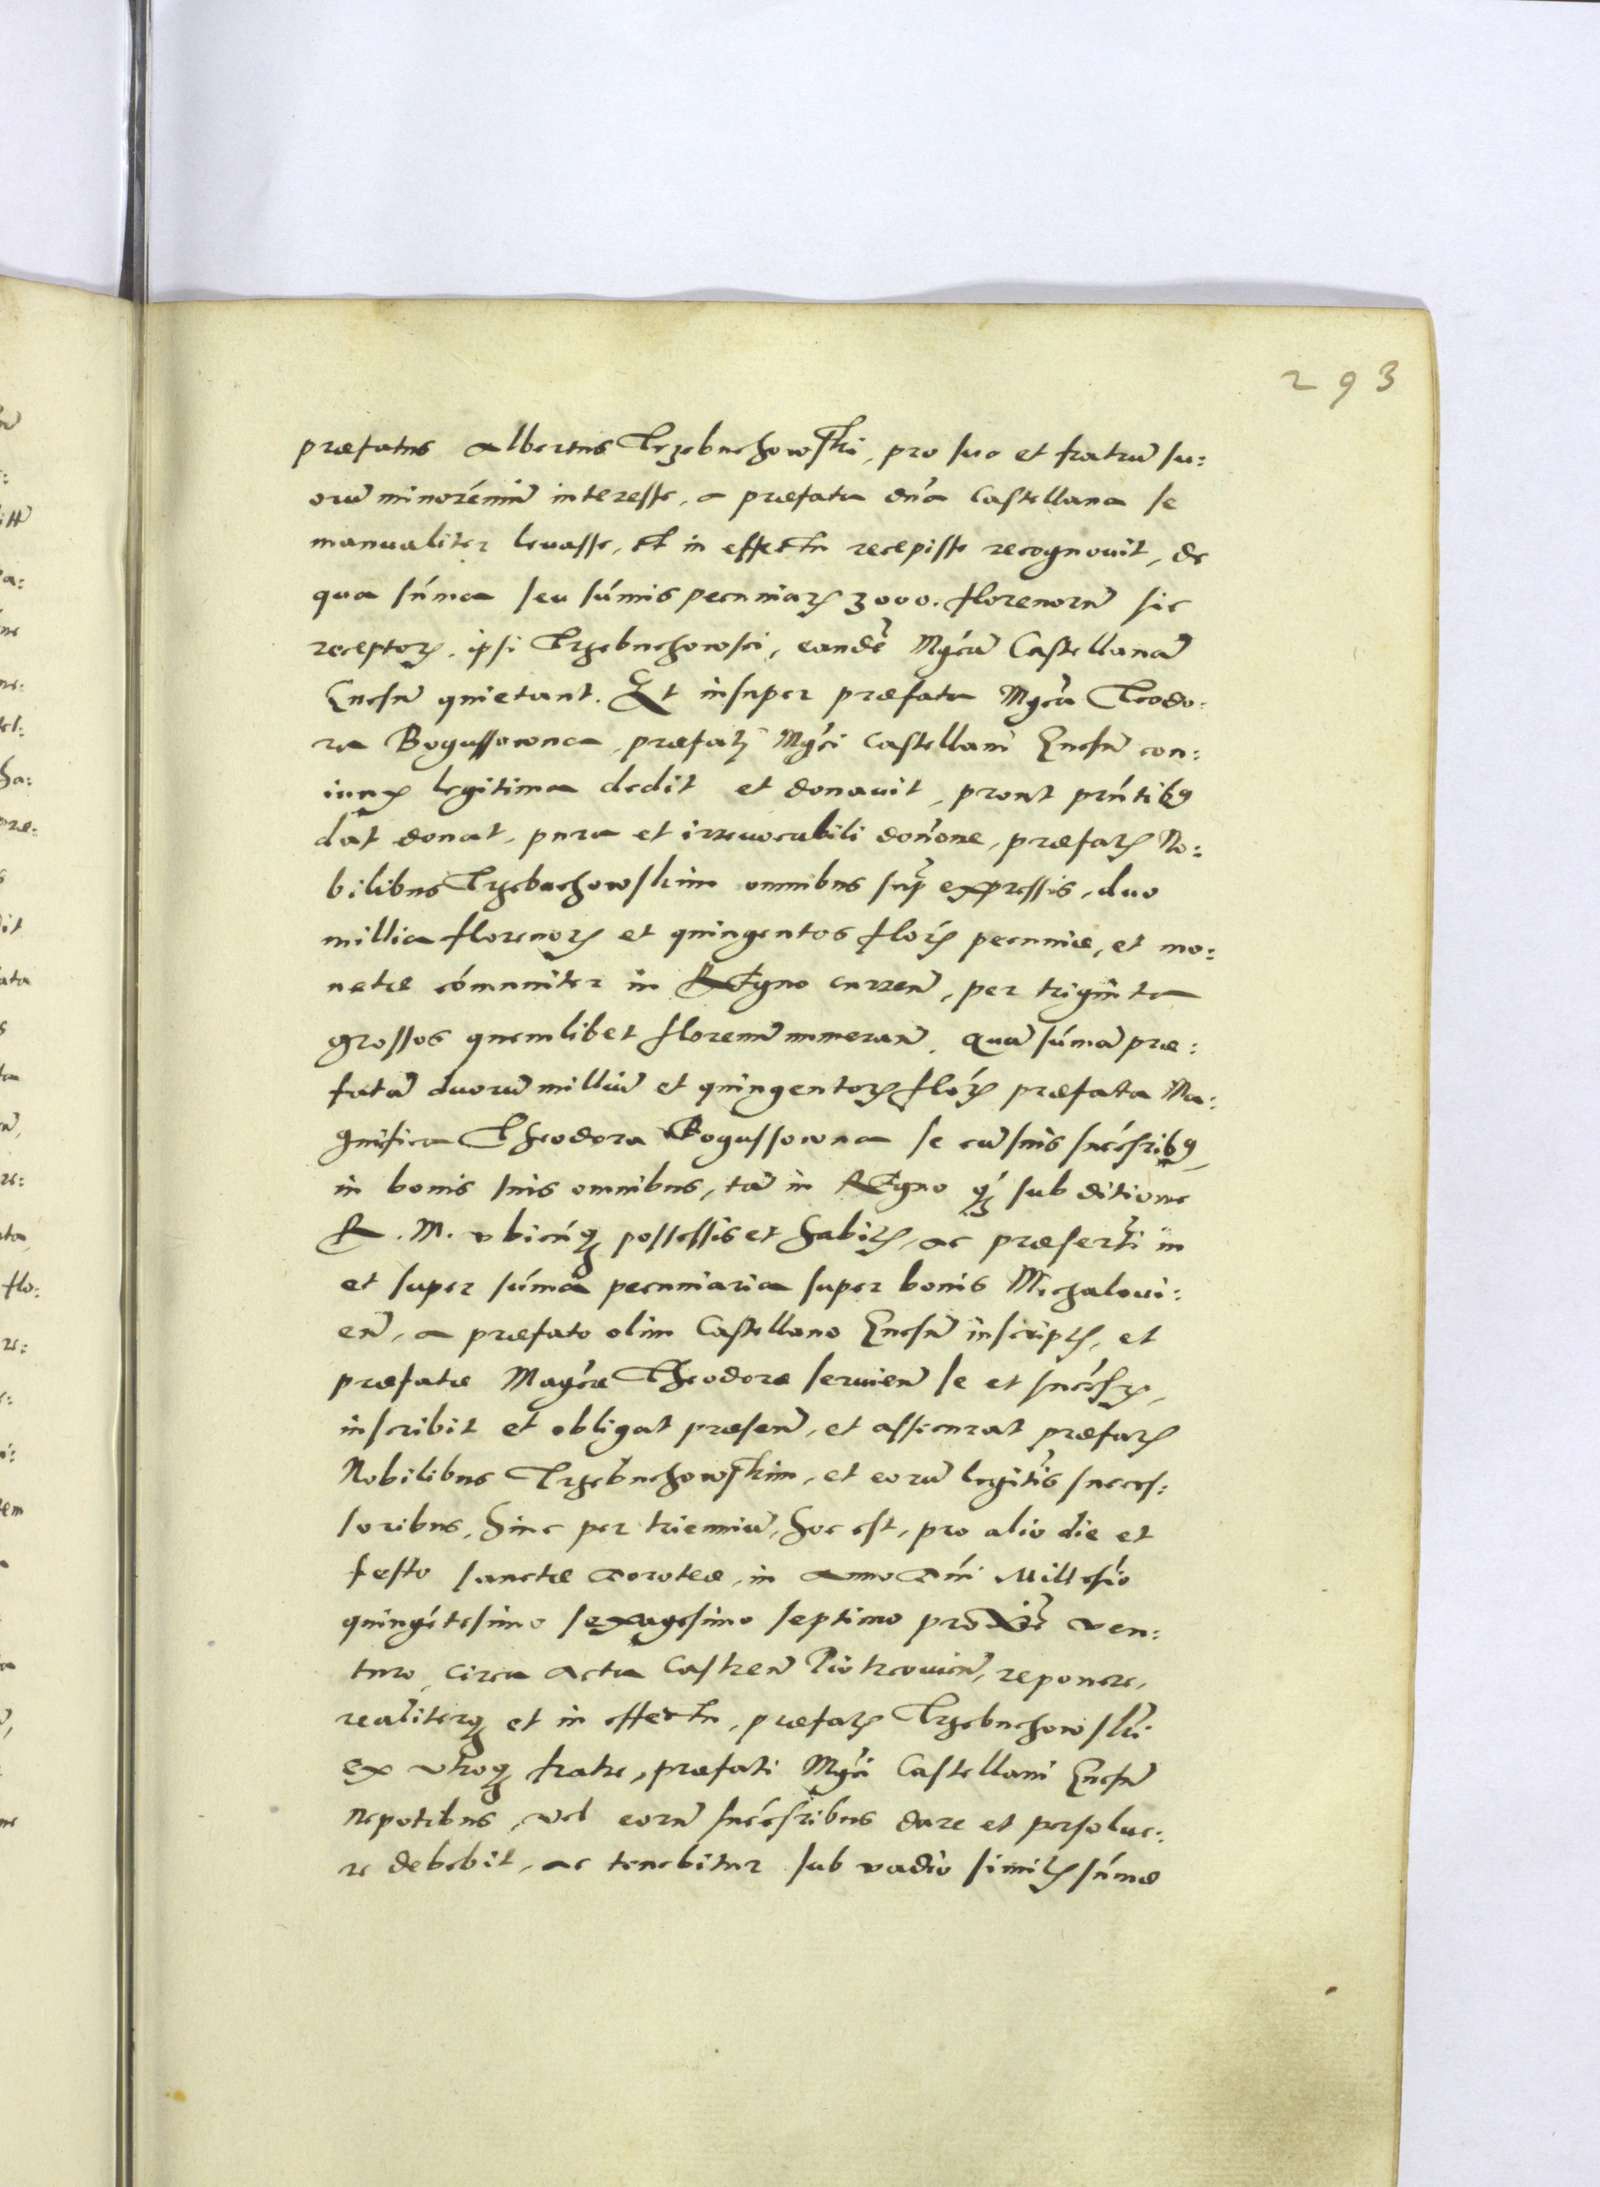 293
præfatus Albertus Trzebuchowski, pro suo et fratrũ su:
orũ minorénniũ interesse, a præfata dńa Castellana se
manualiter levasse, et in effectu recepisse recognouit, de
qua súmma seu súmmis pecuniarꝝ 3000. florenorũ sic
receptorꝝ. ipsi Trzebuchowsci, eandẽ Mg̃cã Castellanã
Gnesñ quietant. Et insuper præfata Mg̃ca Teodo:
ra Bogussowna, præfatj Mg̃ci Castellani Gnesñ con:
iunx legitima dedit et donauit, prout prńtibꝰ
dat donat, pura et irreuocabili doňone, præfatꝭ No:
bilibus Trzebuchowskim omnibus sup̃ expressis, duo
millia florenorꝝ et quingentos florꝭ pecuniæ, et mo:
netæ cómmuniter in REgno curreñ, per triginta
grossos quemlibet florenũ numerañ. Quã súmmã præ:
fatã duorũ milliũ et quingentorꝝ flórꝝ præfata Ma:
gnifica Theodora Bogussowna se cũ suis succésribꝰ,
in bonis suis omnibus, tã in REgno q́ꝫ sub ditione
R. M. vbicúnqꝫ possessis et habitꝭ, ac præsertĩ in
et super súmma pecuniaria super bonis Michaloui:
eñ, a præfato olim Castellano Gnesñ inscriptꝭ, et
præfatæ Magćæ Theodoræ seruieñ se et succésrꝭ,
inscribit et obligat præseñ, et assecurat præfatꝭ
Nobilibus Trzebuchowskim, et eorũ legitĩs succes:
soribus, hinc per trienniũ, hoc est, pro alio die et
festo sanctæ Doroteæ, in anno Dńi Millesío
quingétesimo sexagesimo septimo proxẽ ven:
turo, circa Acta Castreñ Piotrcouieñ, reponere,
realiterqꝫ et in effectu, præfatꝭ Trzebuchowskĩ
ex vtroqꝫ fratre, præfati Mg̃ci Castellani Gnesñ
nepotibus, vel eorũ succésribus dare et persolue:
re debebit, ac tenebitur sub vadio similꝭ súmmæ